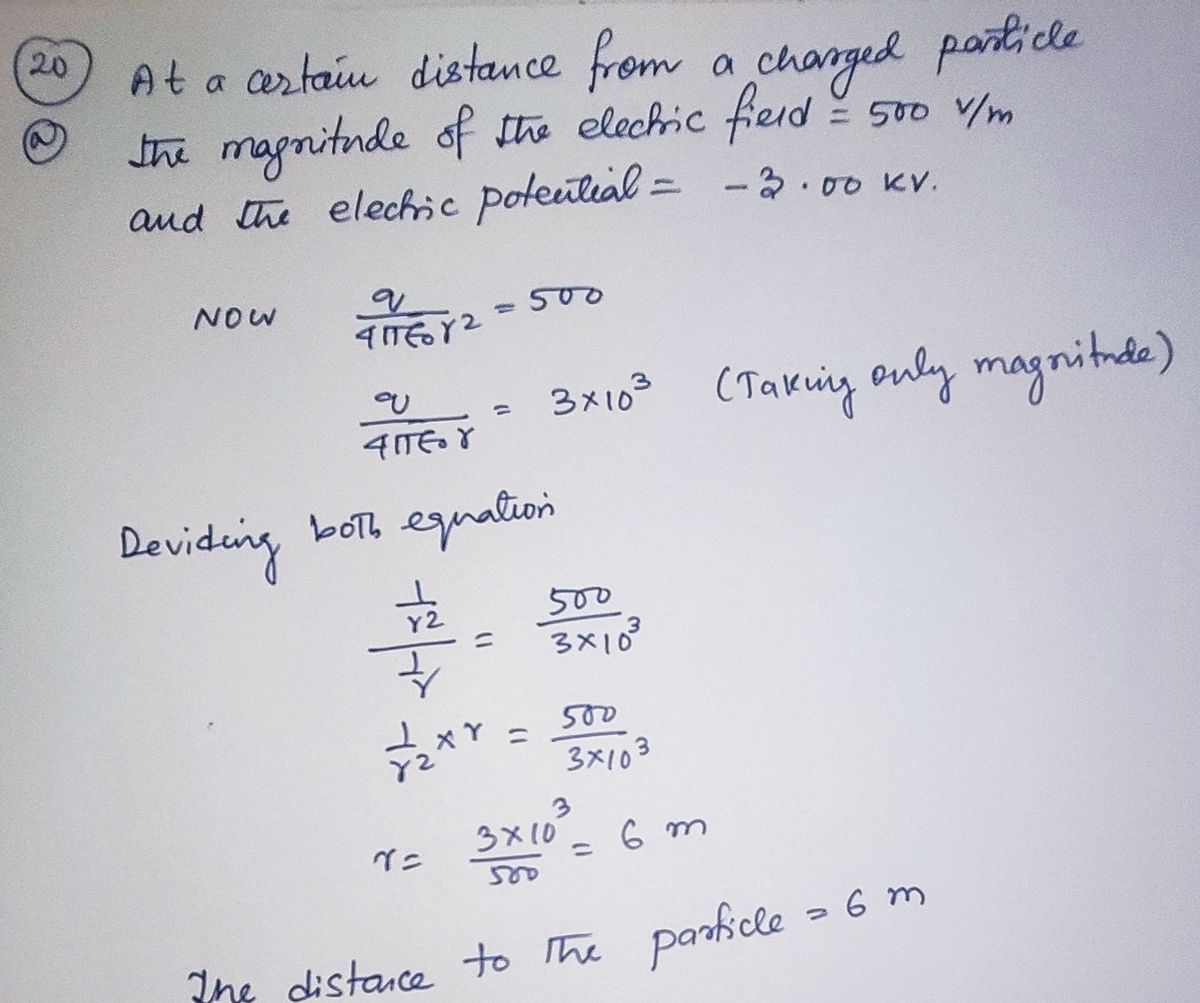 20 At a certain distance from a charged particle
(a) the magnitude of the electric field = 500 V/m
and the electric potential = -3.00 KV.
NOW q/4π∈₀r² = 500
q/4π∈₀r = 3×10³ (Taking only magnitude)
Deviding both equation
(1/r²)/(1/r) = 500/3×10³
1/r² × r = 500/3×10³
r = 3×10³/500 = 6 m
The distance to the particle = 6 m